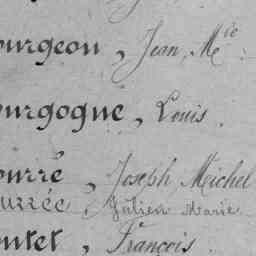 ourgeon, Jean, M^ie
ourgogne, Louis.
ourré, Joseph Michel
urrée, Julien Marie
outet, François.